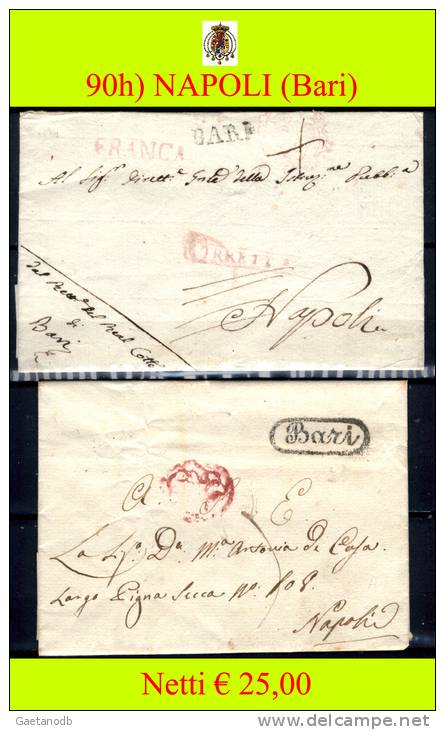 90h) NAPOLI (Bari)
FRANCA
BARI
Al Sig.r Dirett.e Gnle della Istruz.ne Pubb.a
Napoli
di
Bari
Bari
A. S. E.
La Sig.a D.a M.a Antonia de Casa
Largo Pigna Secca N.o 108.
Napoli
Netti € 25,00
Gaetanodb
delcampe.net